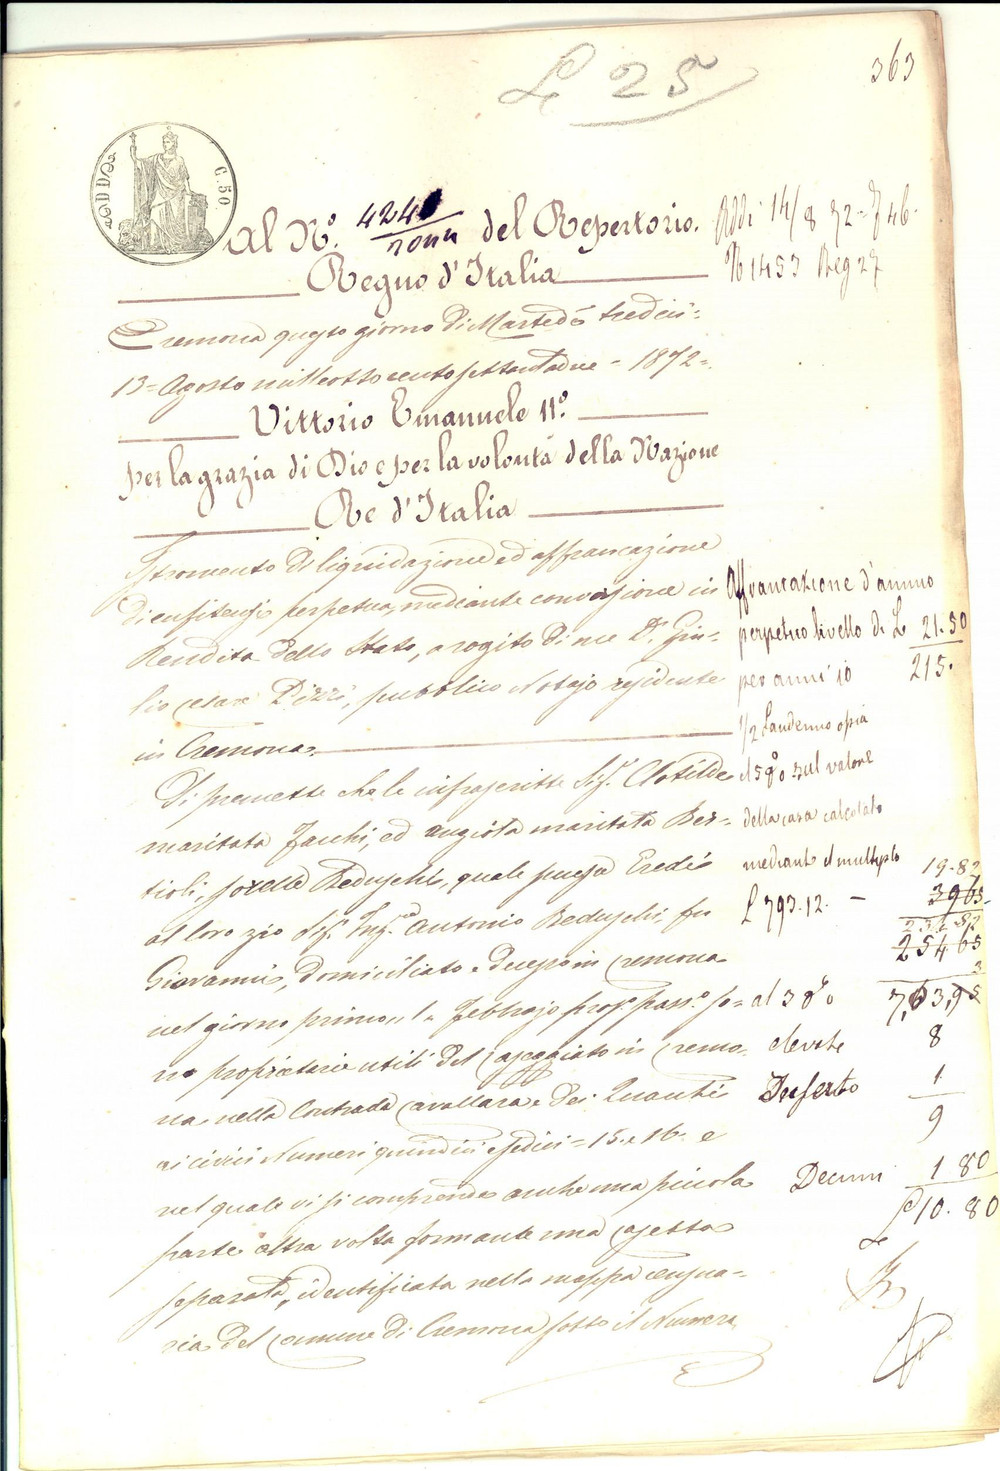 L 25
363
C. 50.
Al N.° 424
del Repertorio.
Addi 14/8 72 - 7 46.
N 1453 Reg 27
Regno d'Italia
Cremona questo giorno di Martedì tredici =
13 = Agosto mille otto cento settantadue = 1872 =.
Vittorio Emanuele II°.
per la grazia di Dio e per la volontà della Nazione
Re d'Italia
Istromento di liquidazione ed affrancazione
di enfiteusi perpetua, mediante conversione in
Rendita dello Stato, a rogito di me Dr. Giu=
lio Cesare Pizzi, pubblico Notajo residente
in Cremona.
Si premette che le infrascritte Sig.e Clotilde
maritata Facchi, ed Angiola maritata Ber=
tioli, sorelle Reduschi, quale pupa Eredi
al loro zio Sig. Ing.e Antonio Reduschi fu
Giovanni, domiciliato e decesso in Cremona
nel giorno primo, 1. Febbrajo pros.o pass.o so=
no proprietarie utili del caseggiato in Cremo=
na nella Contrada Cavallara e dei Quanti
ai civici Numeri quindici e sedici = 15. e 16. e
nel quale vi si comprende anche una piccola
parte altra volta formante una casetta
separata, identificata nella mappa censua=
ria del Comune di Cremona sotto il Numero
Affrancazione d'annuo
perpetuo livello di L 21.50
per anni 10 215.
1/2 Laudemio ossia
il 5 % sul valore
della casa calcolato
mediante il multiplo 19.82
L 793.12. - 3965
234.82
25465
3
al 3 % 7,63,95
elevate 8
Inserto 1
9
Decimi 1 80
L 10.80